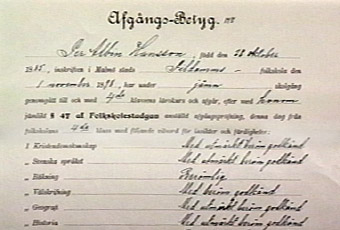 Afgångs-Betyg.
Per Albin Hansson, född den 28 oktober
1885, inskrifven i Malmö stads folkskola den
1 november 1893, har under jämn skolgång
genomgått till och med 4de klassens lärokurs och utgår, efter med
jämlikt § 47 af Folkskolestadgan anställd afgångspröfning, denna dag från
folkskolans 4de klass med följande vitsord för insikter och färdigheter:
I Kristendomskunskap Med utmärkt beröm godkänd
„ Svenska språket Med utmärkt beröm godkänd
„ Räkning Berömlig
„ Välskrifning Med beröm godkänd
„ Geografi Med utmärkt beröm godkänd
„ Historia Med utmärkt beröm godkänd